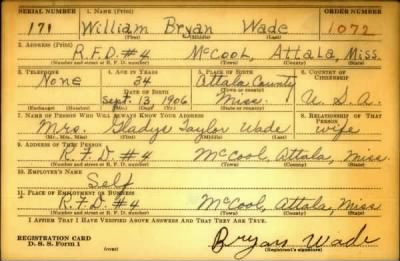 SERIAL NUMBER 1. NAME (Print) ORDER NUMBER
171 William Bryan Wade 1072
(First) (Middle) (Last)
2. ADDRESS (Print)
R.F.D. #4 McCool, Attala, Miss.
(Number and street or R. F. D. number) (Town) (County) (State)
3. TELEPHONE 4. AGE IN YEARS 5. PLACE OF BIRTH 6. COUNTRY OF CITIZENSHIP
None 34 Attala County
DATE OF BIRTH (Town or county)
Sept. 13, 1906 Miss. U. S. A.
(Exchange) (Number) (Mo.) (Day) (Yr.) (State or country)
7. NAME OF PERSON WHO WILL ALWAYS KNOW YOUR ADDRESS 8. RELATIONSHIP OF THAT PERSON
Mrs. Gladys Taylor Wade wife
(Mr., Mrs., Miss) (First) (Middle) (Last)
9. ADDRESS OF THAT PERSON
R.F.D. #4 McCool, Attala, Miss.
(Number and street or R. F. D. number) (Town) (County) (State)
10. EMPLOYER'S NAME
Self
11. PLACE OF EMPLOYMENT OR BUSINESS
R.F.D. #4 McCool, Attala, Miss
(Number and street or R. F. D. number) (Town) (County) (State)
I AFFIRM THAT I HAVE VERIFIED ABOVE ANSWERS AND THAT THEY ARE TRUE.
REGISTRATION CARD
D. S. S. Form 1 (over) Bryan Wade
(Registrant's signature)